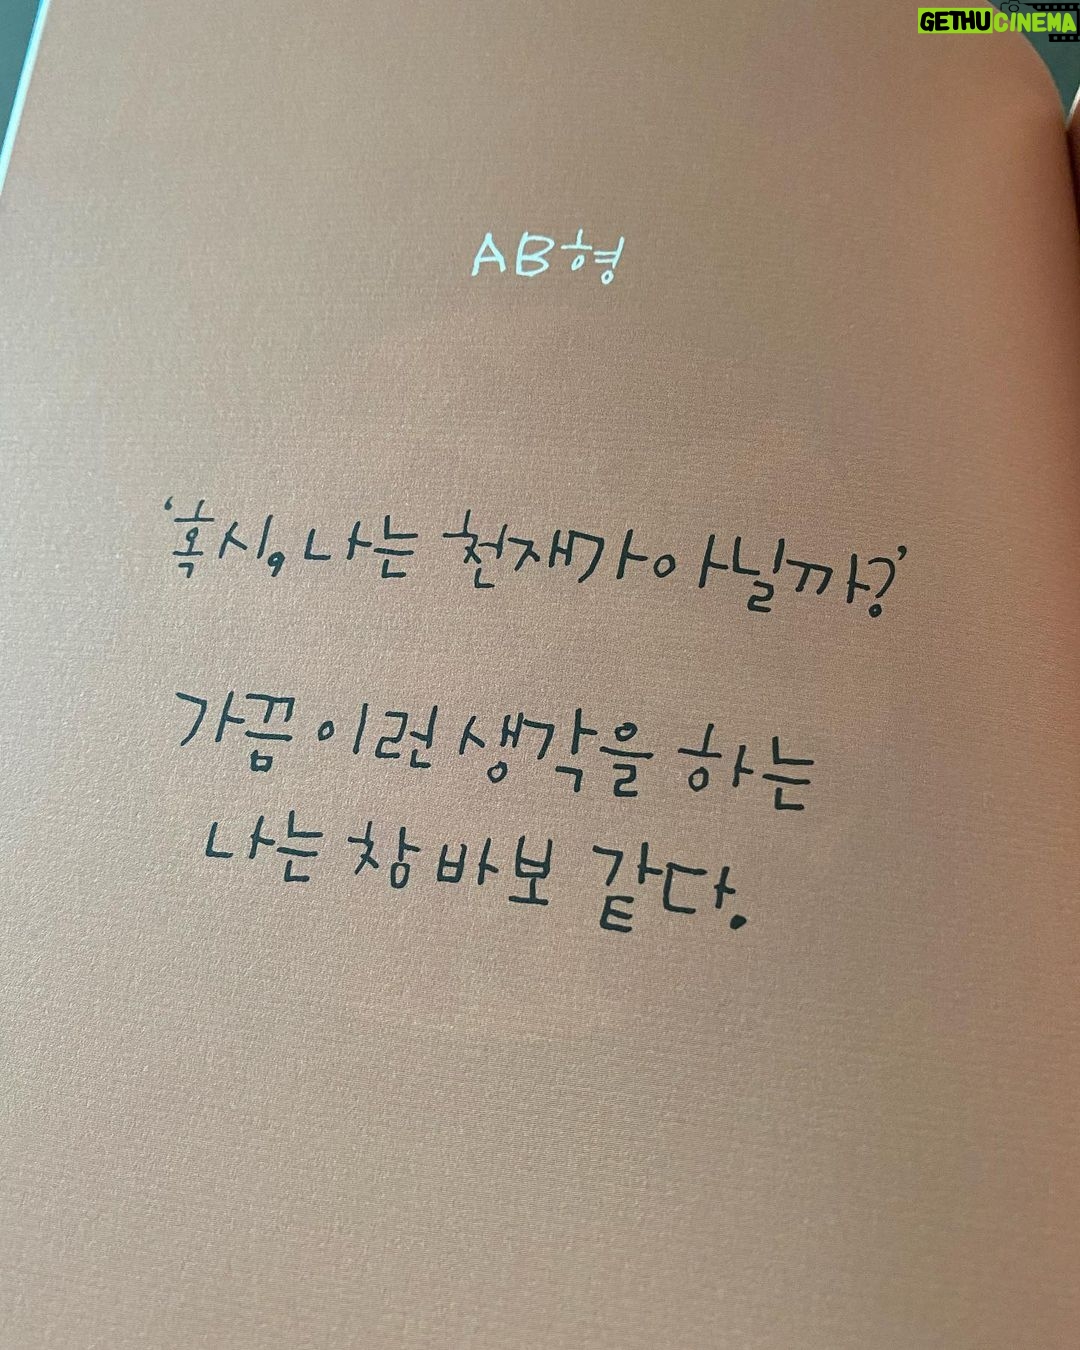 GETHUCINEMA
AB형
'혹시, 나는 천재가 아닐까?'
가끔 이런 생각을 하는
나는 참 바보 같다.